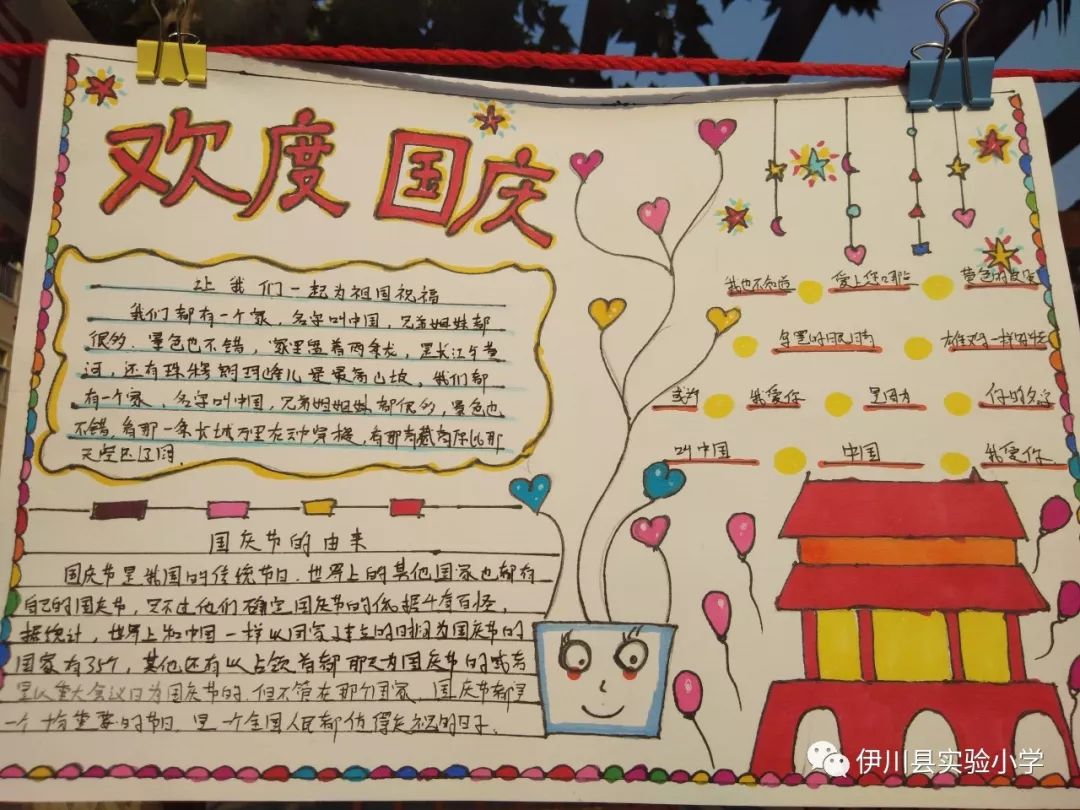 欢度国庆
让我们一起为祖国祝福
我们都有一个家,名字叫中国,兄弟姐妹都
很多,景色也不错,家里盘着两条龙,是长江与黄
河,还有珠穆朗玛峰儿是最高山坡,我们都
有一个家,名字叫中国,兄弟姐妹都很多,景色也
不错,看那一条长城万里在云中穿梭,看那青藏高原比那
天空还辽阔
国庆节的由来
国庆节是我国的传统节日,世界上的其他国家也都有
自己的国庆节,只不过他们确定国庆节的依据千奇百怪,
据统计,世界上和中国一样以国家建立的日期为国庆节的
国家有35个,其他还有以占领首都那天为国庆节的或者
是以重大会议日为国庆节的,但不管在那个国家,国庆节都是
一个 重要的节日,是一个全国人民都值得 的日子.
我也不知道 爱上您哪些 黄色的皮肤
黑色的眼睛 雄鸡一样的
或许 我爱你 是因为 你的名字
叫中国 中国 我爱你
伊川县实验小学